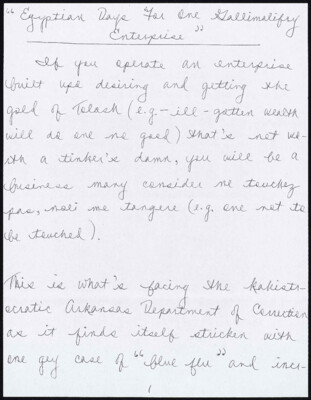 "Egyptian Days For One Gallimalifry
Enterprise"
If you operate an enterprise
built upo desiring and getting the
gold of Tolash (e.g. - ill - gotten wealth
will do one no good) that's not wo-
rth a tinker's damn, you will be a
business many consider ne touchez
pas, noli me tangere (e.g. one not to
be touched).
This is what's facing the Kakisto-
cratic Arkansas Department of Correction
as it finds itself stricken with
one gey case of "blue flu" and incr-
1